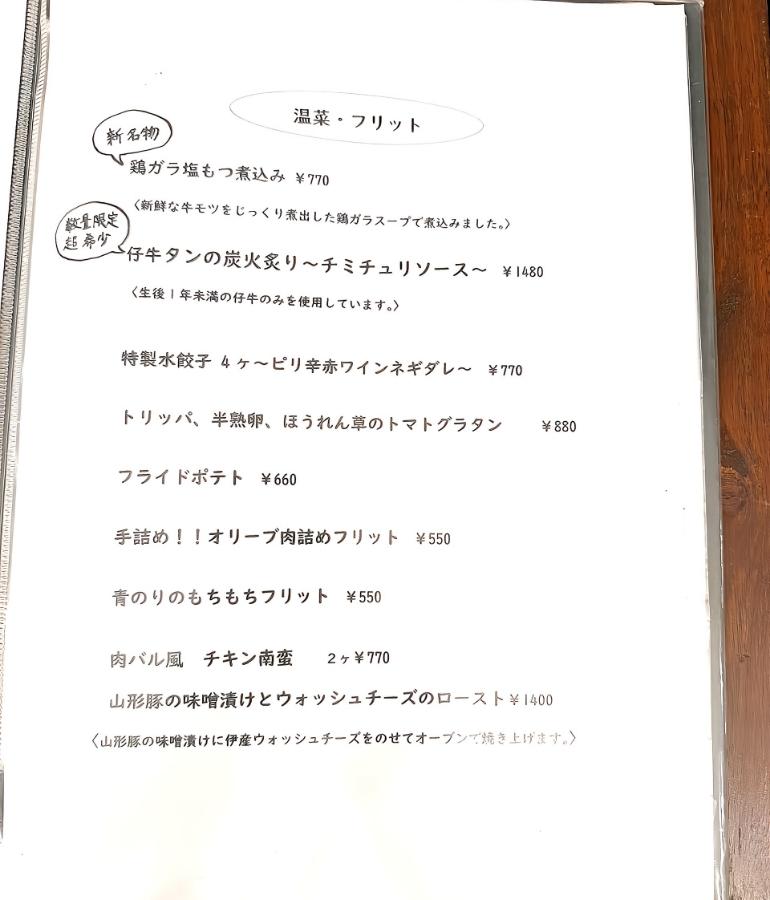 温菜・フリット
新名物
鶏ガラ塩もつ煮込み ¥770
〈新鮮な牛モツをじっくり煮出した鶏ガラスープで煮込みました。〉
数量限定
超希少
仔牛タンの炭火炙り〜チミチュリソース〜 ¥1480
〈生後1年未満の仔牛のみを使用しています。〉
特製水餃子 4ヶ〜ピリ辛赤ワインネギダレ〜 ¥770
トリッパ、半熟卵、ほうれん草のトマトグラタン ¥880
フライドポテト ¥660
手詰め!!オリーブ肉詰めフリット ¥550
青のりのもちもちフリット ¥550
肉バル風 チキン南蛮 2ヶ¥770
山形豚の味噌漬けとウォッシュチーズのロースト¥1400
〈山形豚の味噌漬けに伊産ウォッシュチーズをのせてオーブンで焼き上げます。〉